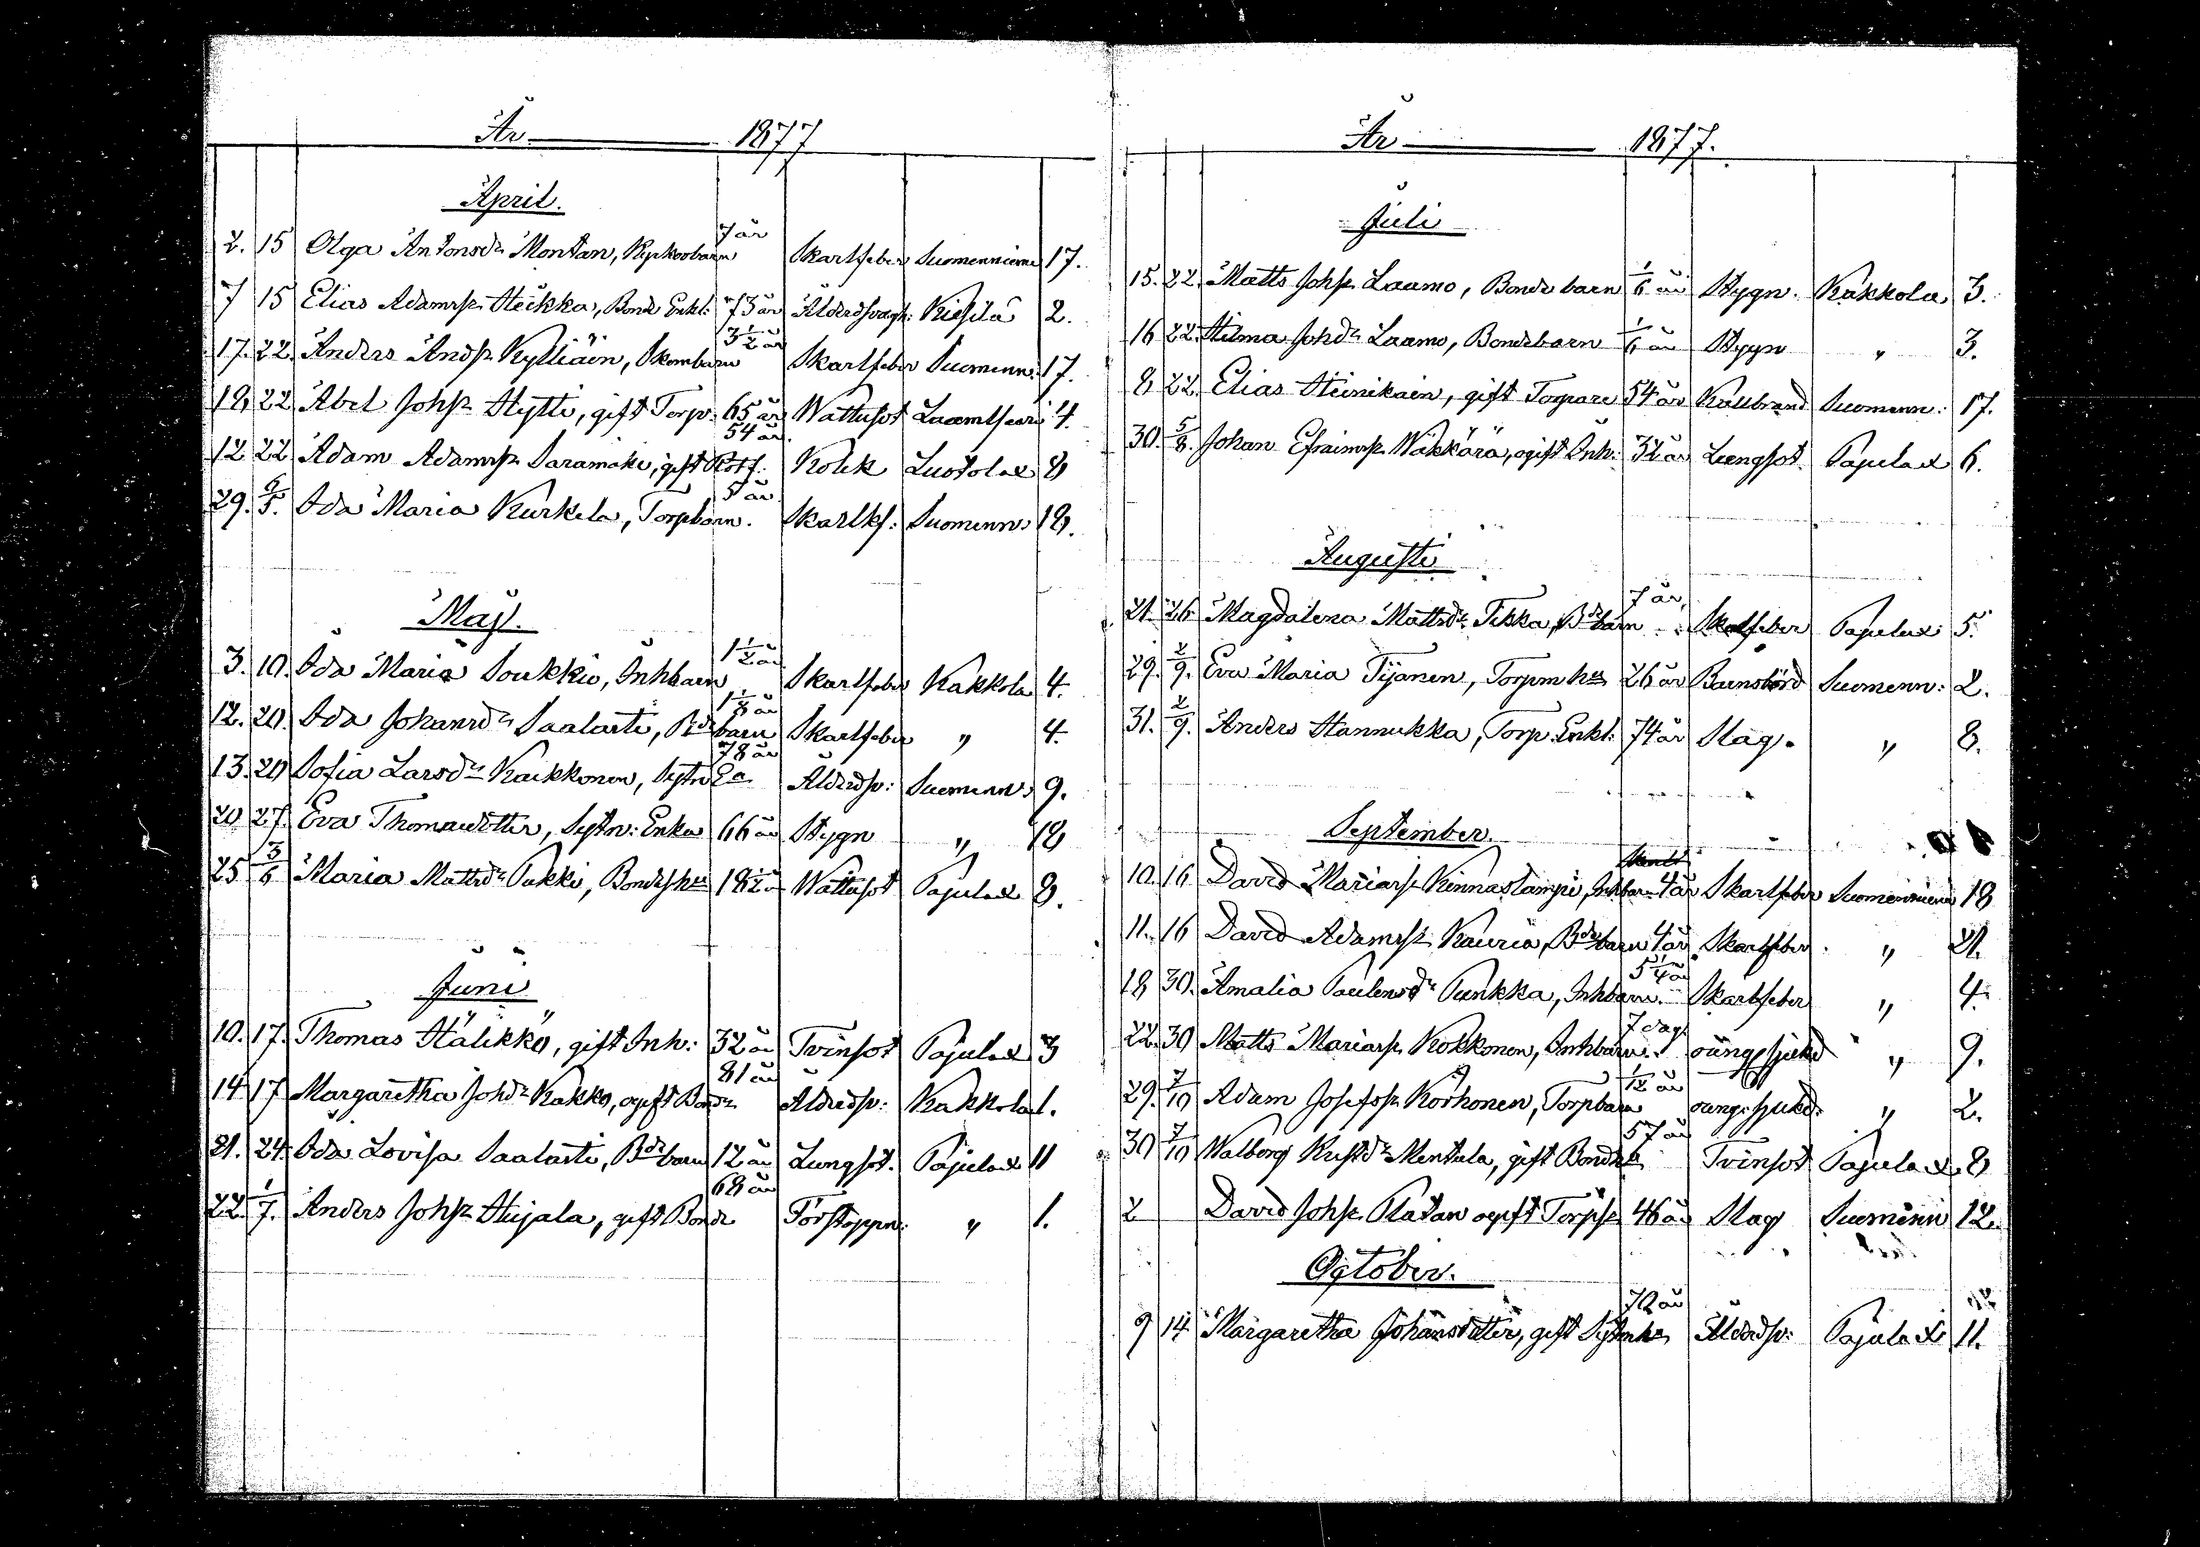 År 1877
April.
2. 15 Olga Antonsdr Montan, Kyrkovbarn 7 år Skarlfeber Suomenniemi 17.
7 15 Elias Adamsn Heikka, Bond Enkl: 73 år Ålderdsvagh: Kiesilä 2.
17. 22. Anders Andsn Kylliäin, Skombarn 3 1/2 år Skarlfeber Suomenn: 17.
18 22 Abel Johsn Hytti, gift Torp. 65 år Wattusot Laamlseari 4.
12 22 Adam Adamsn Saramäki, gift 54 år. Kolik Luotolax 8
29. 6/5. Ida Maria Kurkela, Torpbarn. 5 år Skarlkf: Suomenn: 18.
Maji.
3. 10. Ida Maria Soukkio, Inhbarn 1 1/2 år Skarlfeber Kakkola 4.
12. 20. Ida Johansdr Saalasti, Bdebarn 1 1/8 år Skarlfeber " 4.
13. 20 Sofia Larsdr Kaikkonen, Sytn Ea 78 år Ålderdsv: Suomenn: 9.
20 27. Eva Thomasdotter, Sytn: Enka 66 år Stygn " 18
25 3/6 Maria Mattsdr Pukki, Bondehu 18 1/2 år Wattusot Pajulax 8.
Juni
10. 17. Thomas Hälikkö, gift Inh: 32 år Tvinsot Pajulax 3
14 17 Margaretha Johdr Kakko, ogift Bondr 81 år Ålderdsv: Kakkola 1.
21. 24. Ida Lovisa Saalasti, Bdebarn 12 år Lungsot. Pajulax 11
22. 1/7. Anders Johsn Hujala, gift Bonde 68 år Förstoppn: " 1.
År 1877.
Juli
15. 22. Matts Johsn Laamo, Bonde barn 1/6 år Stygn. Kakkola 3.
16 22. Hilma Johdr Laamo, Bondebarn 1/6 år Stygn " 3.
8 22. Elias Heinikain, gift Torpare 54 år Kallbrand Suomenn: 17.
30. 5/8. Johan Efraimsn Wäkkärä, ogift Inh: 32 år Lungsot Pajulax 6.
Augusti
21. 26 Magdalena Mattsdr Tikka, Bdebarn 7 år, Skalfeber Pajulax 5.
29. 2/9. Eva Maria Tijanen, Torpm hu 26 år Barnsbörd Suomenn: 2.
31. 2/9. Anders Hannukka, Torp. Enkl: 74 år Slag. " 8.
September.
10. 16 David Mariasn Kinnaslampi, Inhbarn 4 år Skarlfeber Suomenniemi 18
11. 16 David Adamsn Kauria, Bdebarn 4 år Skarlfeber " 21.
18 30. Amalia Paulensdr Punkka, Inhbarn. 5 1/4 år Skarlfeber " 4.
22. 30 Matts Mariasn Kokkonen, Inhbarn. 7 dag. oüngifsjukd " 9.
29. 7/10 Adam Josefsn Korhonen, Torpbarn 1/12 år oüngifsjukd. " 2.
30 7/10 Walborg Kustdr Mentula, gift Bondhu 57 år Tvinsot Pajulax 8
2 David Johsn Platan ogift Torpsn 46 år Slag Suomenn 12.
October.
9 14 Margaretha Johansdotter, gift Sytnhu 70 år Ålderdsv: Pajulax 11.